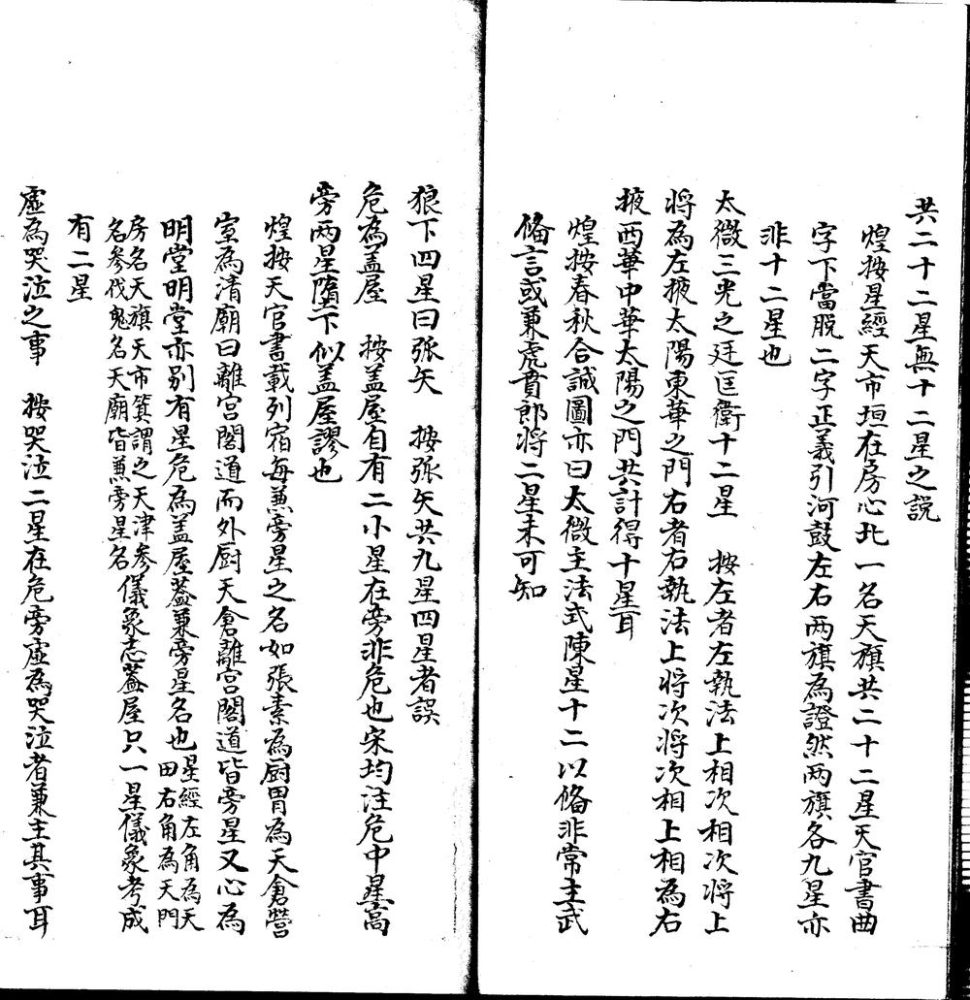 共二十二星無十二星之說
煌按星經天市垣在房心北一名天旗共二十二星天官書曲
字下當脫二字正義引河鼓左右两旗為證然两旗各九星亦
非十二星也
太微三光之廷匡衛十二星　按左者左執法上相次相次將上
將為左掖太陽東華之門右者右執法上將次將次相上相為右
掖西華中華太陽之門共計得十星耳
煌按春秋合誠圖亦曰太微主法式陳星十二以俻非常主武
俻言或兼虎賁郎將二星未可知
狼下四星曰弧矢　按弧矢共九星四星者誤
危為盖屋　按盖屋自有二小星在旁非危也宋均注危中星高
旁两星墮下似盖屋謬也
煌按天官書載列宿每兼旁星之名如張素為厨胃為天倉營
室為清廟曰離宫閣道而外厨天倉離宫閣道皆旁星又心為
明堂明堂亦别有星危為盖屋葢兼旁星名也星經左角為天
田右角為天門
房名天旗天市箕謂之天津参
名参伐鬼名天廟皆兼旁星名
儀象志葢屋只一星儀象考成
有二星
虛為哭泣之事　按哭泣二星在危旁虛為哭泣者兼主其事耳